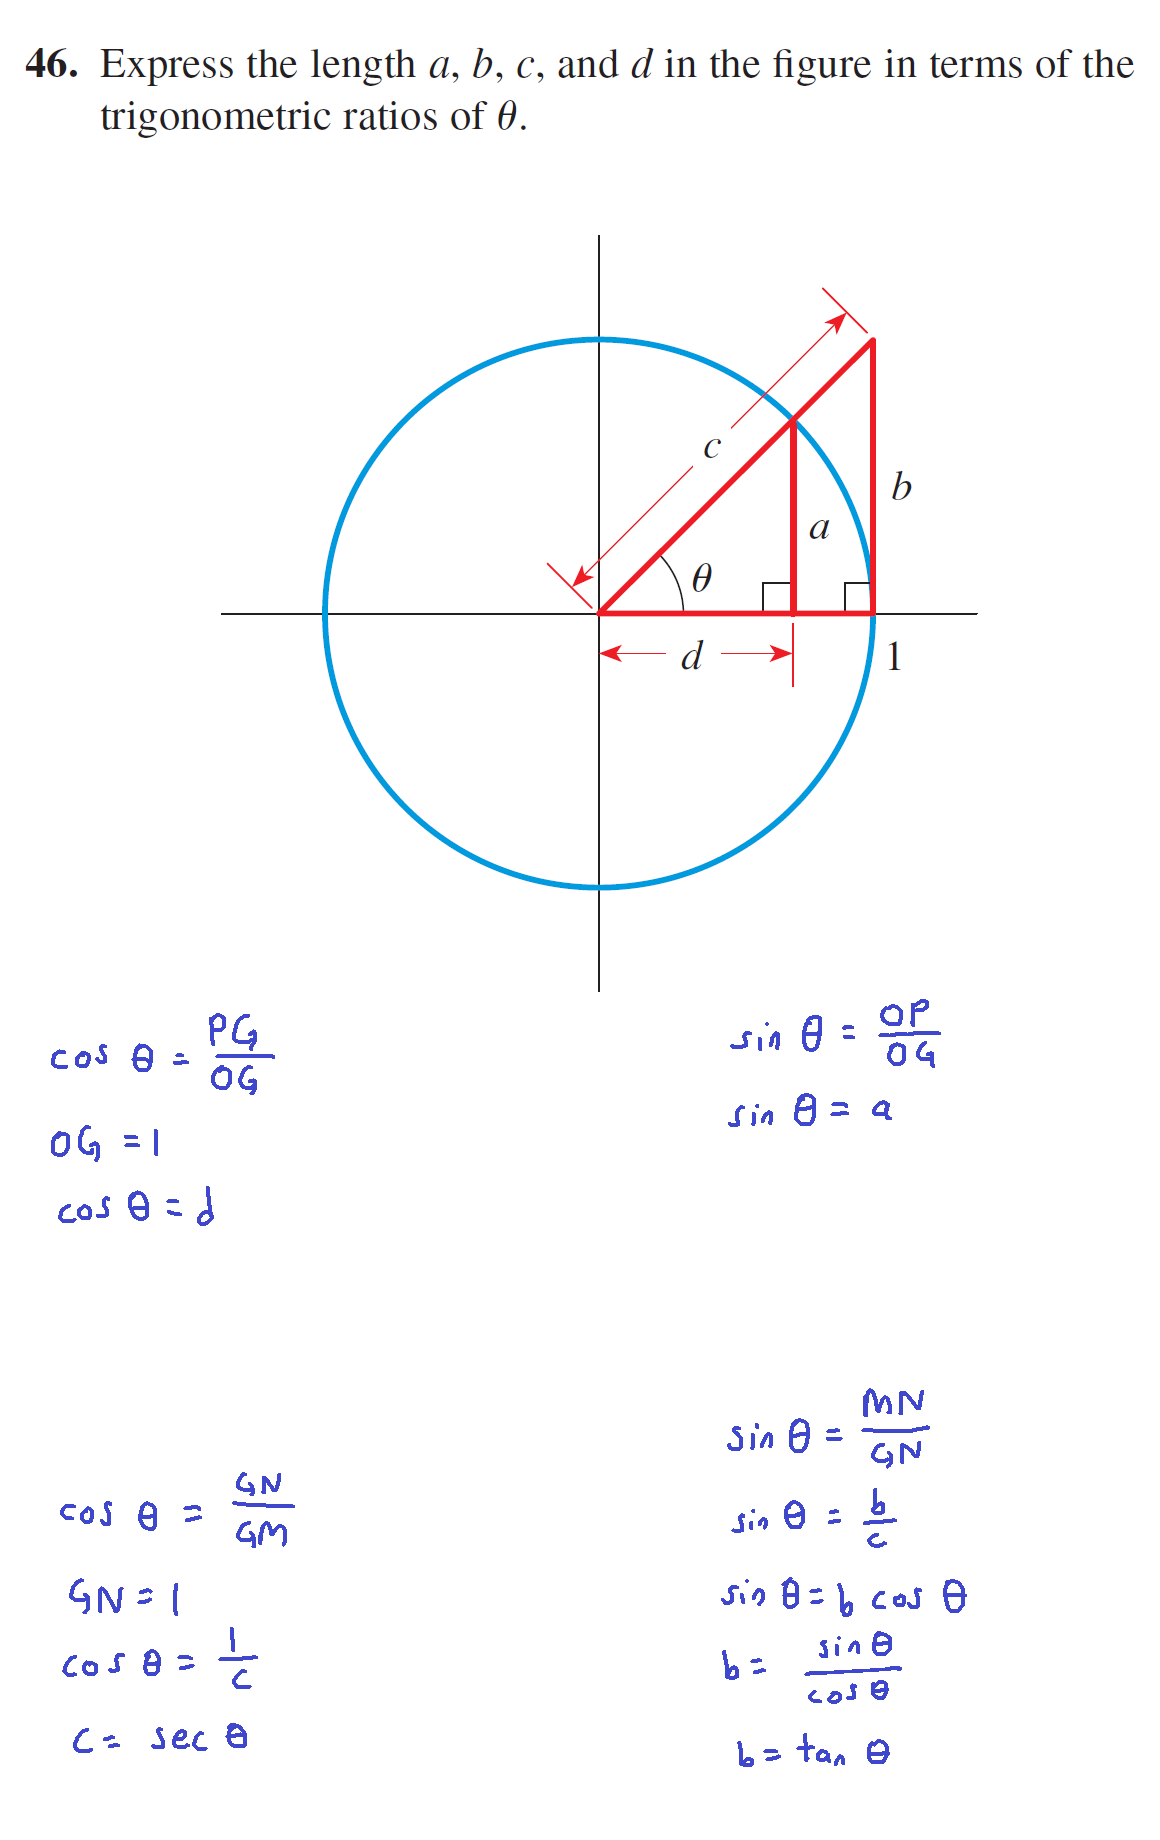 46. Express the length a, b, c, and d in the figure in terms of the
trigonometric ratios of θ.
c
b
a
θ
d
1
cos θ = PG/OG
OG = 1
cos θ = d
sin θ = OP/OG
sin θ = a
cos θ = GN/GM
GN = 1
cos θ = 1/c
c = sec θ
sin θ = MN/GN
sin θ = b/c
sin θ = b cos θ
b = sin θ/cos θ
b = tan θ